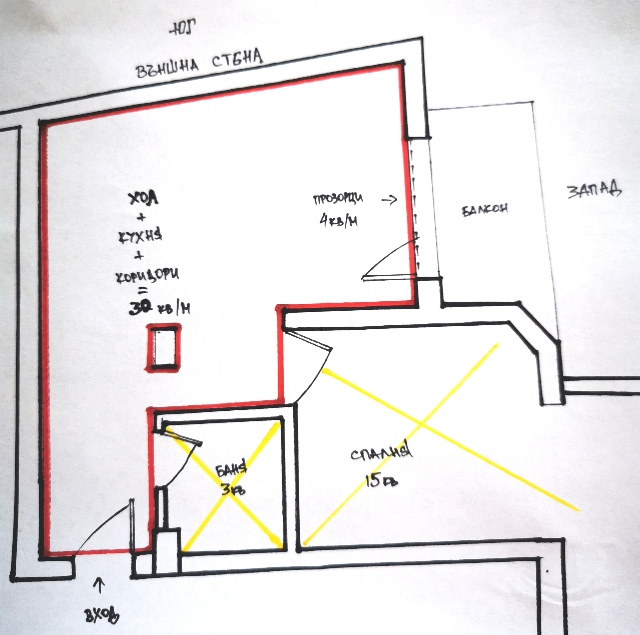 ЮГ
ВЪНШНА СТЕНА
ЗАПАД
ХОЛ
+
КУХНЯ
+
КОРИДОРИ
=
30 КВ/М
ПРОЗОРЦИ →
4 КВ/М
БАЛКОН
БАНЯ
3 КВ
СПАЛНЯ
15 КВ
↑
ВХОД